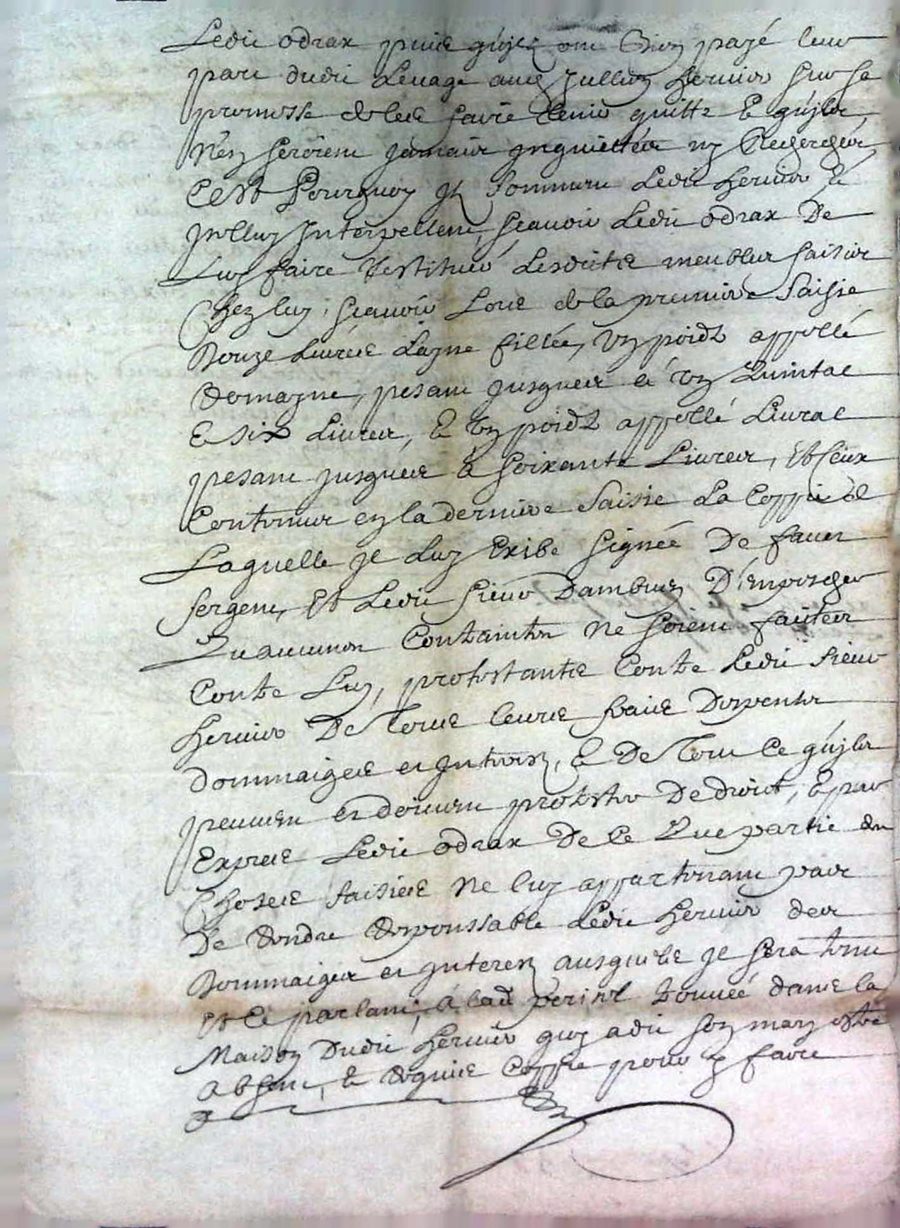 Ledit odrax puis quils ont bien payé leur
part dudit Louage audit Jullien hernier sur sa
promesse de les faire tenir quitte et quils
n'en seroient jamais inquiettés ny Recerchés
C'est Pourquoy Ilz Somment Ledit hernier et
Julluy Interpellent, scavoir Ledit odrax De
Luy faire Restituer Lesdites meubles saisis
Chez luy, scavoir Lors de la premiere saisie
Douze Livres Layne fillée, un poidz appellé
Romayne, pesant jusques à un Quintal
et six Livres, et un poidz appellé Livral
pesant jusques à soixante Livres, Et ceux
Contenus en la derniere saisie La Coppie de
Laquelle je Luy exibe signée De faver
sergent, Et Ledit sieur Dambuen D'empescher
Qu'aucunes Contraintes ne soient faites
Contre Luy, protestants Contre Ledit sieur
hernier De Tous leurs frais Despents
dommaiges et Interestz, et De Tout Ce quils
peuvent et doivent protester De droit, et par
Expres Ledit odrax De ce Que partie des
Choses saisies ne luy appartenant pas
De Rendre Responsable Ledit hernier des
Dommaiges et Interestz ausquels je sera tenu
Et Ce parlant, à trouvée dans la
Maison Dudit hernier quy a dit son mary estre
Absent, et Requis Coppie pour y faire